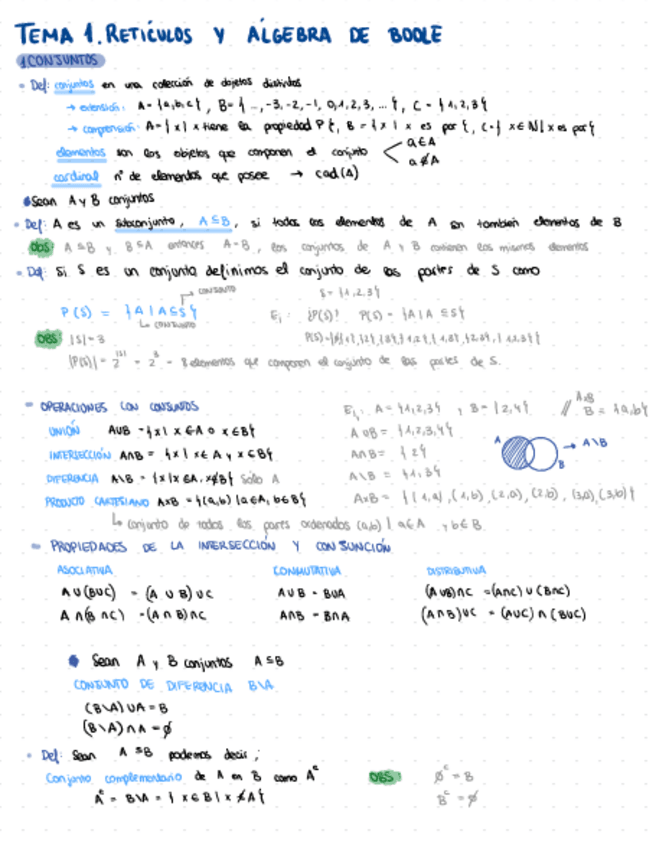 TEMA 1. RETÍCULOS Y ÁLGEBRA DE BOOLE
1 CONJUNTOS
- Def: conjuntos en una colección de objetos distintos
→ extensión: A = {a,b,c}, B = {..., -3, -2, -1, 0, 1, 2, 3, ...}, C = {1,2,3}
→ comprensión: A = {x | x tiene la propiedad P}, B = {x | x es par}, C = { x ∈ N | x es par}
elementos son los objetos que componen el conjunto a ∈ A
a ∉ A
cardinal nº de elementos que posee → cad(A)
Sean A y B conjuntos
- Def: A es un subconjunto, A ⊆ B, si todos los elementos de A son también elementos de B
OBS: A ⊆ B y B ⊆ A entonces A = B, los conjuntos de A y B contienen los mismos elementos
- Def: Si S es un conjunto definimos el conjunto de las partes de S como
CONJUNTO S = {1,2,3}
P(S) = {A | A ⊆ S} Ej: ¿P(S)? P(S) = {A | A ⊆ S}
CONJUNTO
OBS: |S| = 3
|P(S)| = 2^|S| = 2^3 = 8 elementos que componen el conjunto de las partes de S.
- OPERACIONES CON CONJUNTOS Ej: A = {1,2,3}, B = {2,4} // AxB B = {a,b}
UNIÓN A∪B = {x | x ∈ A o x ∈ B} A∪B = {1,2,3,4}
INTERSECCIÓN A∩B = {x | x ∈ A y x ∈ B} A∩B = {2} A B → A\B
DIFERENCIA A\B = {x | x ∈ A, x ∉ B} Sólo A A\B = {1,3}
PRODUCTO CARTESIANO AxB = {(a,b) | a ∈ A, b ∈ B} AxB = {(1,a), (1,b), (2,a), (2,b), (3,a), (3,b)}
↳ conjunto de todos los pares ordenados (a,b) | a ∈ A y b ∈ B.
- PROPIEDADES DE LA INTERSECCIÓN Y CONJUNCIÓN
ASOCIATIVA CONMUTATIVA DISTRIBUTIVA
A∪(B∪C) = (A∪B)∪C A∪B = B∪A (A∪B)∩C = (A∩C)∪(B∩C)
A∩(B∩C) = (A∩B)∩C A∩B = B∩A (A∩B)∪C = (A∪C)∩(B∪C)
Sean A y B conjuntos A ⊆ B
CONJUNTO DE DIFERENCIA B\A
(B\A)∪A = B
(B\A)∩A = ∅
- Def: Sean A ⊆ B podemos decir;
Conjunto complementario de A en B como A^c OBS: ∅^c = B
A^c = B\A = {x ∈ B | x ∉ A} B^c = ∅